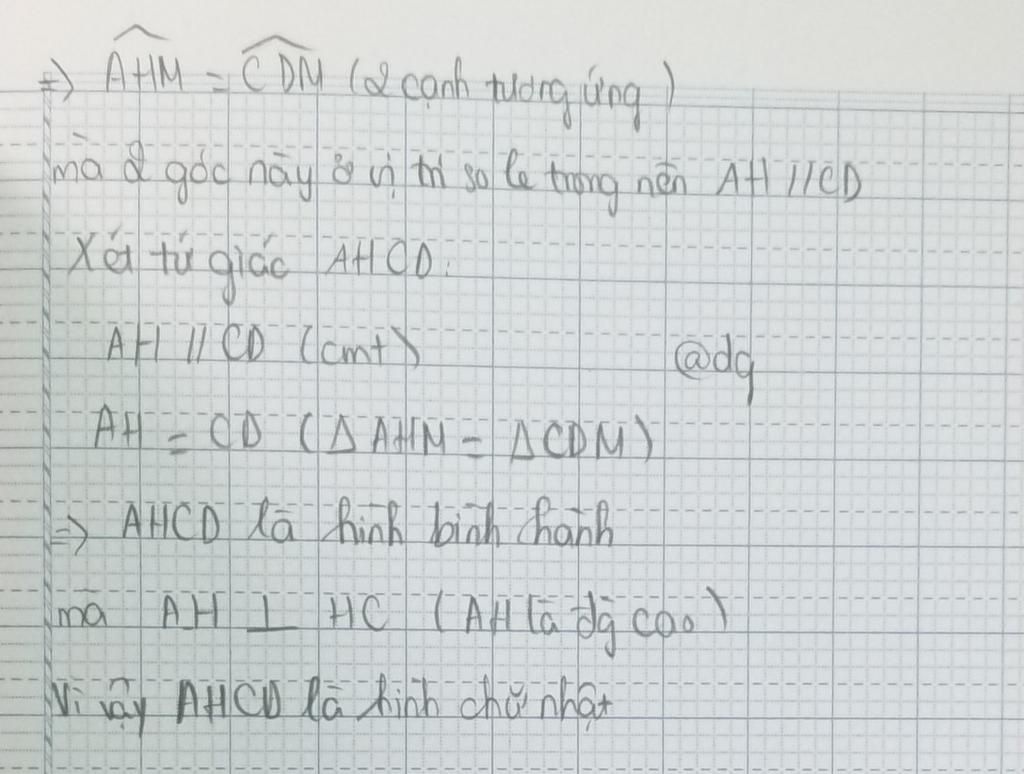 => AHM = CDM (2 cạnh tương ứng)
mà 2 góc này ở vị trí so le trong nên AH // CD
Xét tứ giác AHCD:
AH // CD (cmt)
@dg
AH = CD (Δ AHM = Δ CDM)
=> AHCD là hình bình hành
mà AH ⊥ HC (AH là đg cao)
Vì vậy AHCD là hình chữ nhật